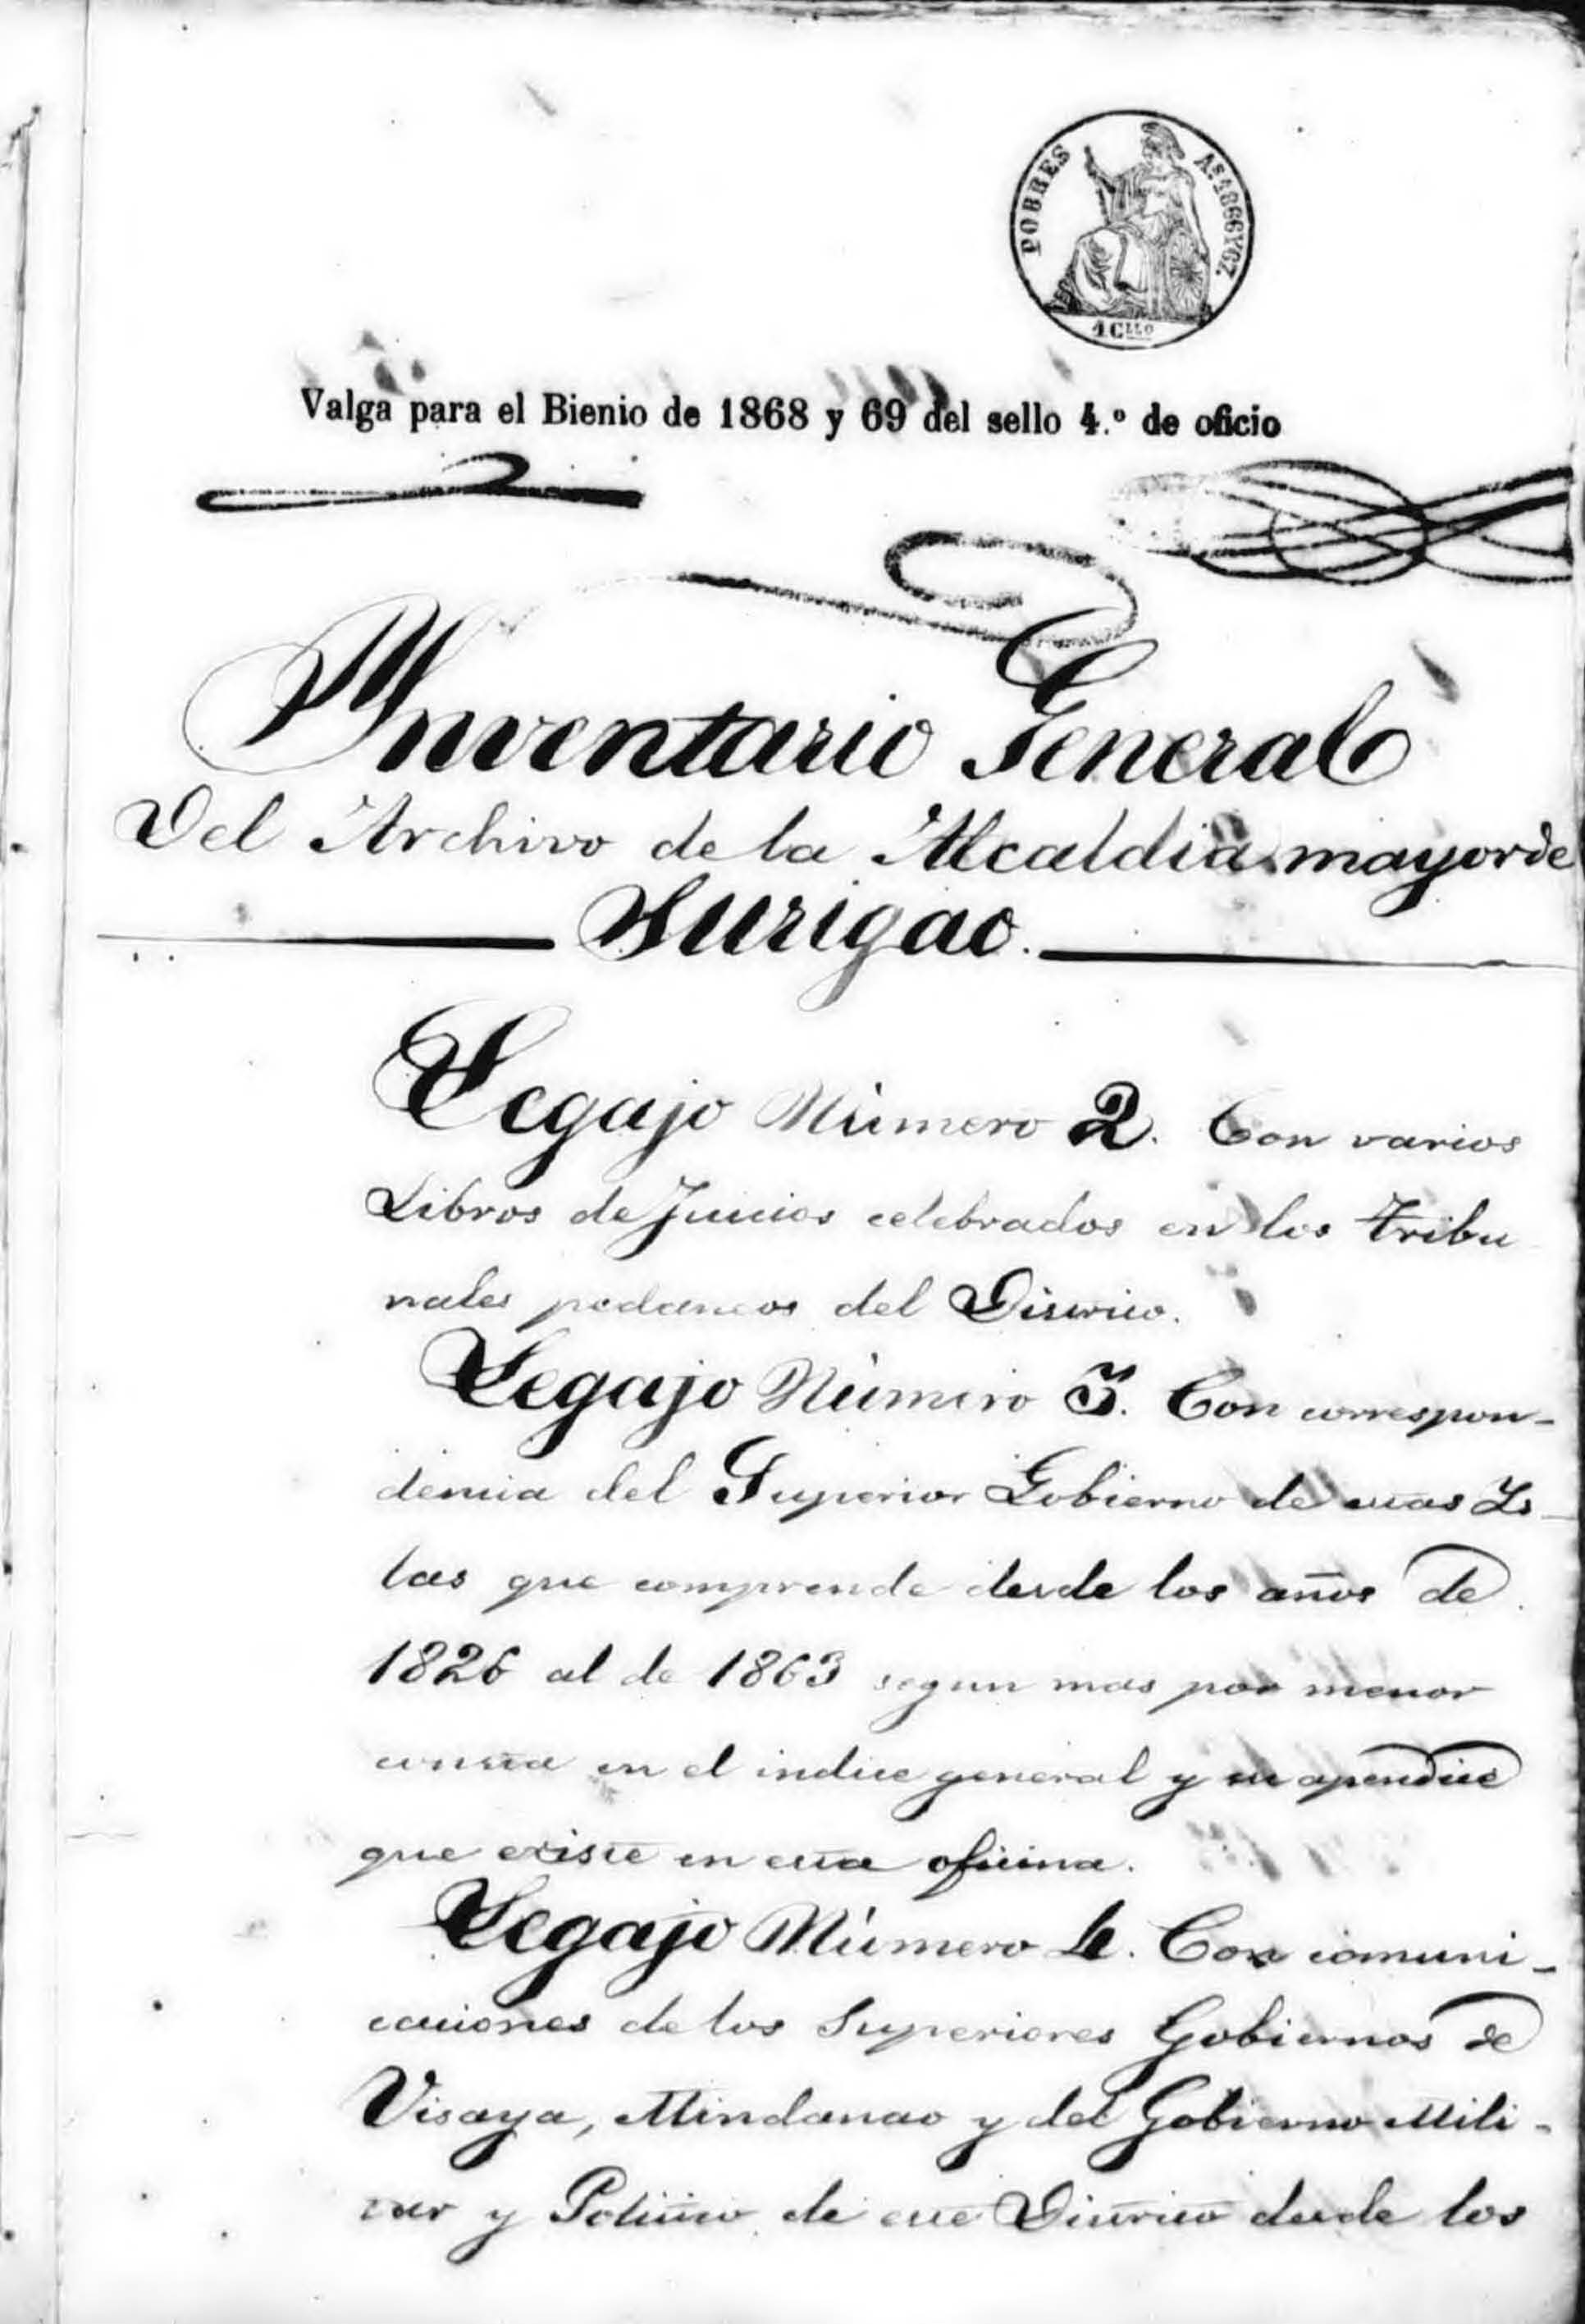 POBRES
Aˢ 1866 Y 67.
4 Cllo
Valga para el Bienio de 1868 y 69 del sello 4.º de oficio
Ynventario General
Del Archivo de la Alcaldia mayor de
Surigao.
Legajo Número 2. Con varios
Libros de Juicios celebrados en los tribu
nales pedaneos del Distrito.
Legajo Número 3. Con correspon-
dencia del Superior Gobierno de estas Is-
las que comprende desde los años de
1826 al de 1863 segun mas por menor
consta en el indice general y su apendice
que existe en esta oficina.
Legajo Número 4. Con comuni-
caciones de los Superiores Gobiernos de
Visaya, Mindanao y del Gobierno Mili-
tar y Politico de este Distrito desde los